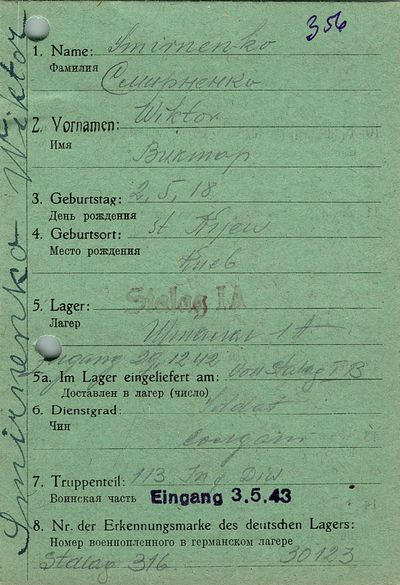 356
Smirnenko Wiktor
1. Name: Smirnenko
Фамилия
Смирненко
2. Vornamen: Wiktor
Имя
Виктор
3. Geburtstag: 2.5.18
День рождения
4. Geburtsort: st Kijew
Место рождения
Киев
5. Lager: Stalag IA
Лагерь
Шталаг 1А
Zugang 29.12.42
5a. Im Lager eingeliefert am: von Stalag
Доставлен в лагер (число)
6. Dienstgrad: Soldat
Чин
Солдат
7. Truppenteil: 113. Inf Div
Воинская часть Eingang 3.5.43
8. Nr. der Erkennungsmarke des deutschen Lagers:
Номер военнопленного в германском лагере
Stalag 316 30123